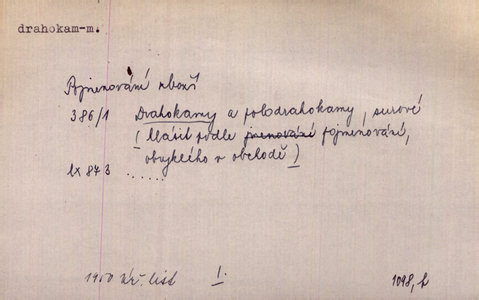 drahokam-m.
Pojmenování zboží
386/1 Drahokamy a polodrahokamy, surové
(hlásit podle jmenování pojmenování,
obvyklého v obchodě)
ex 873 ......
1950 I. 1098,2